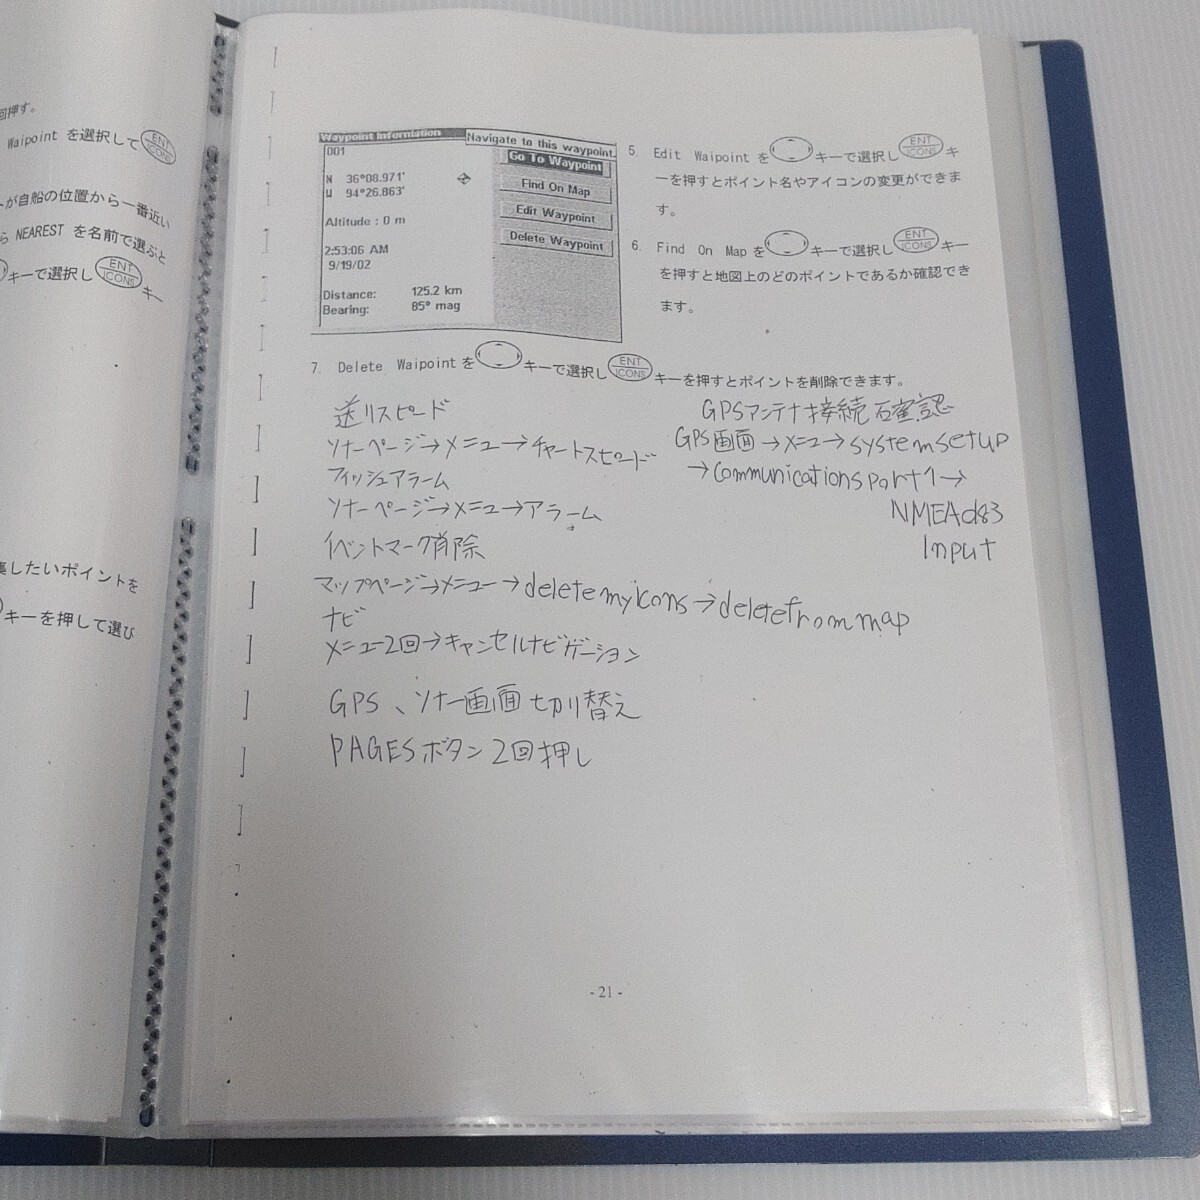 回押す。
Waipoint を選択して ENT ICONS
が自船の位置から一番近い
ら NEAREST を名前で選ぶと
キーで選択し ENT ICONS キー
集したいポイントを
キーを押して選び
Waypoint Information
Navigate to this waypoint.
001
N 36°08.971'
W 94°26.863'
Altitude : 0 m
2:53:06 AM
9/19/02
Distance: 125.2 km
Bearing: 85° mag
Go To Waypoint
Find On Map
Edit Waypoint
Delete Waypoint
5. Edit Waipoint を キーで選択し ENT ICONS キ
ーを押すとポイント名やアイコンの変更ができま
す。
6. Find On Map を キーで選択し ENT ICONS キー
を押すと地図上のどのポイントであるか確認でき
ます。
7. Delete Waipoint を キーで選択し ENT ICONS キーを押すとポイントを削除できます。
送りスピード
ソナーページ→メニュー→チャートスピード
フィッシュアラーム
ソナーページ→メニュー→アラーム
イベントマーク削除
マップページ→メニュー→delete my icons→delete from map
ナビ
メニュー2回→キャンセルナビゲーション
GPS、ソナー画面切り替え
PAGESボタン2回押し
GPSアンテナ接続確認
GPS画面→メニュー→system setup
→Communications port1→
NMEA0183
Input
- 21 -